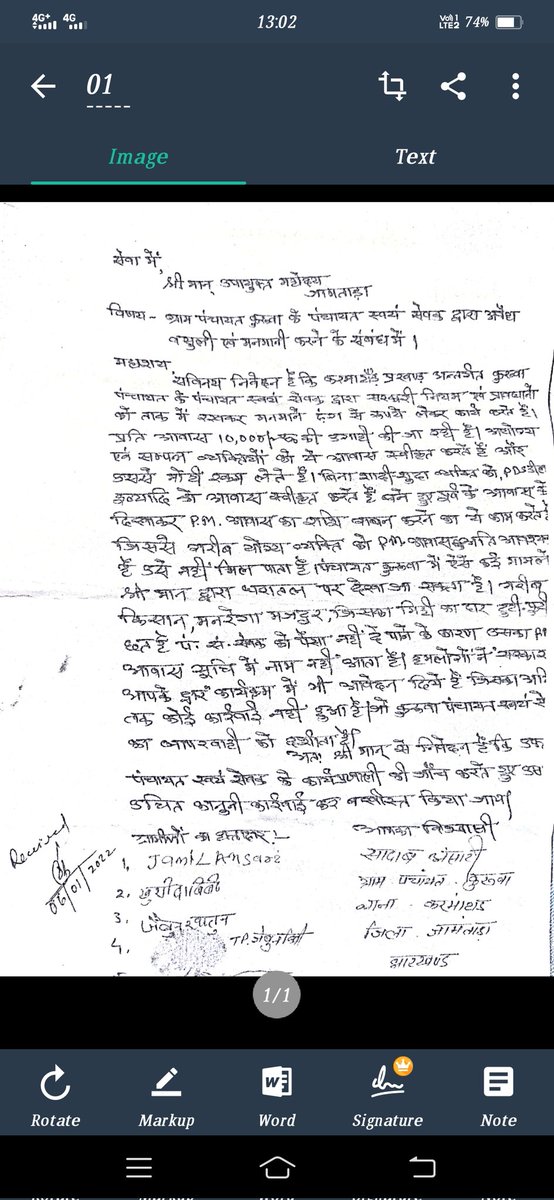 4G+ 4G 13:02 Vo) 1 LTE2 74%
01
Image Text
सेवा में,
श्री मान् उपायुक्त महोदय
जामताड़ा
विषय - ग्राम पंचायत कुरुवा के पंचायत स्वयं सेवक द्वारा अवैध
वसुली एवं मनमानी करने के संबंध में।
महाशय,
सविनय निवेदन है कि करमाटाँड़ प्रखण्ड अन्तर्गत कुरुवा
पंचायत के पंचायत स्वयं सेवक द्वारा सरकारी नियम एवं प्रावधानो
को ताक में रखकर मनमाने ढंग से रूपये लेकर कार्य करते है।
प्रति आवास 10,000/- रू की उगाही की जा रही है। अयोग्य
एवं सम्पन्न व्यक्तियों को ये आवास स्वीकृत करते हैं और
उससे मोटी रकम लेते हैं। बिना शादी-शुदा व्यक्ति को, PDS डीलर
इत्यादि को आवास स्वीकृत करते हैं बने हुए पूर्व के आवास को
दिखाकर P.M. आवास का राशि गबन करने का ये काम करते है
जिससे गरीब योग्य व्यक्ति को P.M आवास आवश्यक
है उसे नहीं मिल पाता है। पंचायत कुरुवा में ऐसे कई मामले
श्री मान द्वारा धरातल पर देखा जा सकता है। गरीब
किसान, मनरेगा मजदुर, जिसका मिट्टी का घर टुटी-फुटी
छत है पं. स. सेवक को पैसा नहीं दे पाने के कारण उसका
आवास सुचि में नाम नहीं आता है। हमलोगों ने सरकार
आपके द्वार कार्यक्रम में भी आवेदन दिये है जिसका अभी
तक कोई कार्रवाई नहीं हुआ है। जो कुरुवा पंचायत स्वयं से
का लापरवाही को दर्शाता है।
अतः श्री मान् से निवेदन है कि उक्त
पंचायत स्वयं सेवक के कार्यप्रणाली की जाँच करते हुए उस
उचित कानुनी कार्रवाई कर बर्खास्त किया जाय।
ग्रामीणों का हस्ताक्षर :- आपका विश्वासी
Received
06/01/2022
1. Jamil Ansari सादाब अंसारी
2. खुर्शीदा बिबी ग्राम पंचायत - कुरुवा
3. जैबुन खातुन थाना - करमाटाड़
4. जिला - जामताड़ा
झारखण्ड
1/1
Rotate Markup Word Signature Note